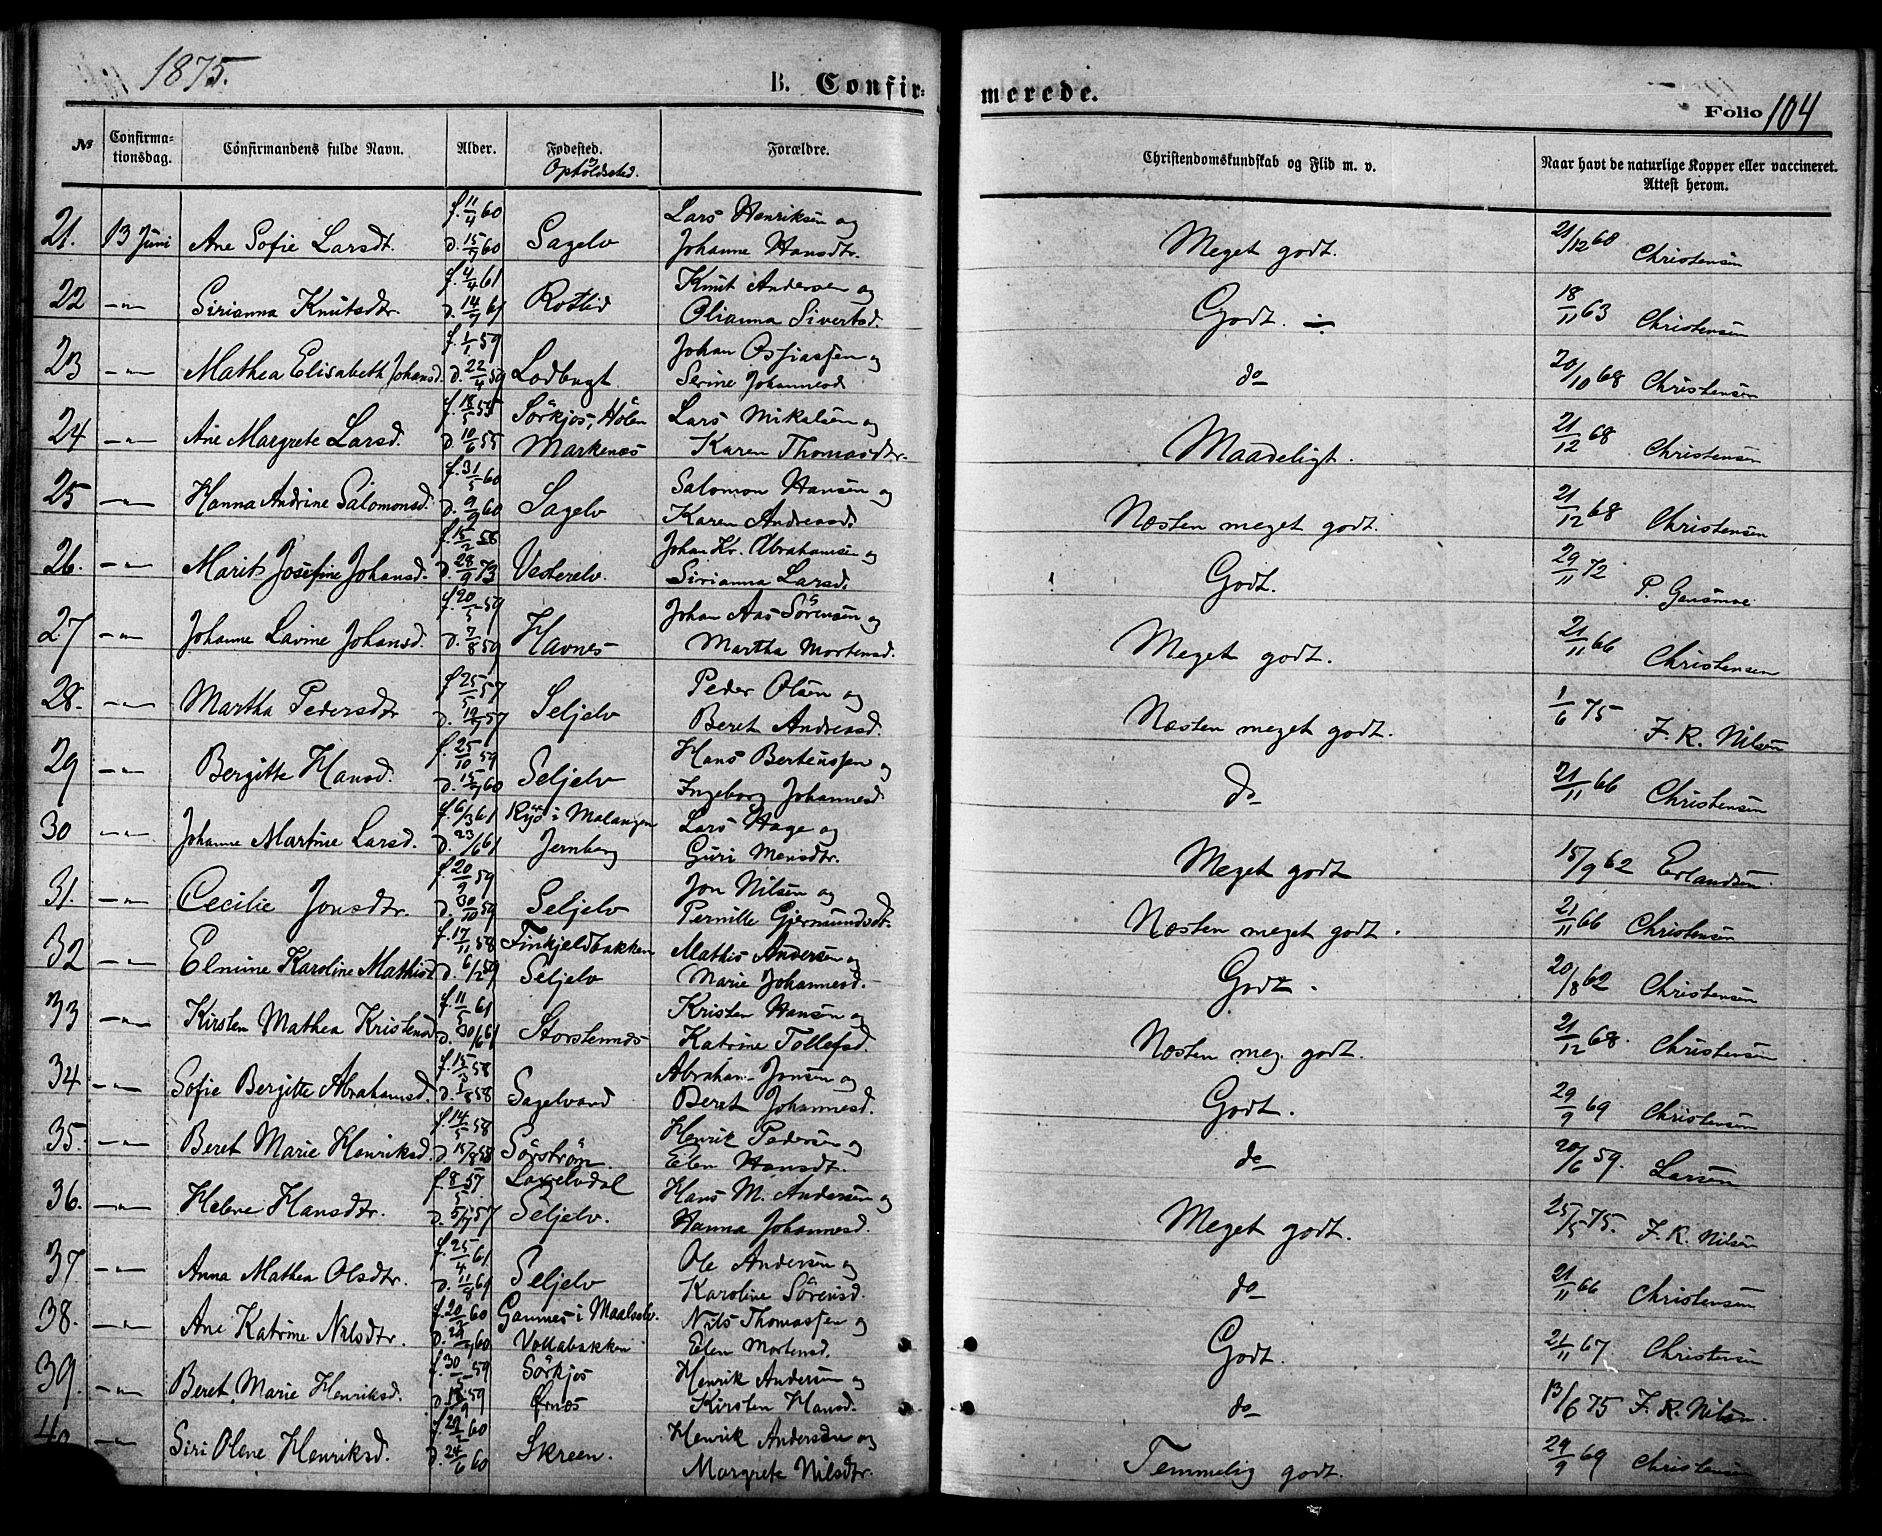 1875.
B. Confir-
merede.
Folio 104
No
Confirma-
tionsdag.
Confirmandens fulde Navn.
Alder.
Fødested.
Opholdssted.
Forældre.
Christendomskundskab og Flid m. v.
Naar havt de naturlige Kopper eller vaccineret.
Attest herom.
f. 11/4 60 Lars Henriksen og
21. 13 Juni Ane Sofie Larsdt. d. 15/7 60 Sagelv Johanne Hansdtr. Meget godt. 21/12 68 Christensen
f. 4/4 61 Knut Andersen og
22 —"— Sirianna Knutsdtr. d. 14/7 61 Rotlid Olianna Sivertsd. Godt. 18/11 63 Christensen
f. 1/1 59 Johan Osfiassen og
23 —"— Mathea Elisabeth Johansd. d. 22/4 59 Lodbugt Serine Johannesd do 20/10 68 Christensen
f. 18/5 55 Sørkjos, Holen Lars Mikalsen og
24 —"— Ane Margrete Larsd. d. 10/6 55 Markenes Karen Thomasdtr. Maadeligt. 21/12 68 Christensen
f. 31/5 60 Salomon Hansen og
25 —"— Hanna Andrine Salomonsd. d. 9/9 60 Sagelv Karen Andreasd. Næsten meget godt. 21/12 68 Christensen
f. 15/2 58 Johan Kr. Abrahamsen og
26. —"— Marit Josefine Johansd. d. 28/9 73 Vesterelv. Sirianna Larsd. Godt. 29/11 72 P.
f. 20/5 59 Johan Aas Sørensen og
27 —"— Johanne Lavine Johansd. d. 7/8 59 Havnes Martha Mortensd. Meget godt. 21/11 66 Christensen
f. 25/5 57 Peder Olsen og
28. —"— Martha Pedersdtr d. 19/7 57 Seljelv Beret Andreasd. Næsten meget godt. 1/6 75 F. R. Nilsen
f. 25/10 59 Hans Bertenssen og
29 —"— Bergitte Hansd. d. 15/7 60 Seljelv Ingeborg Johannesd do 21/11 66 Christensen
f. 6/3 61 Ryø i Malangen Lars Hage og
30 —"— Johanne Martine Larsd. d. 23/6 61 Jernberg Guri Monsdtr. Meget godt 15/9 62 Erlandsen
f. 20/9 59 Jon Nilsen og
31. —"— Cecilie Jonsdtr. d. 30/10 59 Seljelv Pernille Gjermundsdt. Næsten meget godt. 21/11 66 Christensen
f. 17/11 58 Finkjeldbakken Mathis Andersen og
32 —"— Elmine Karoline Mathisd d. 6/2 59 Seljelv Marie Johannesd. Godt. 20/8 62 Christensen
f. 11/5 61 Kristen Hansen og
33 —"— Kirsten Mathea Kristensd d. 30/6 61 Storstennes Katrine Tollefsd. Næsten meg. godt. 21/12 68. Christensen
f. 15/3 58 Abraham Jonsen og
34 —"— Sofie Bergitte Abrahamsd. d. 1/8 58 Sagelvand Beret Johannesd. Godt. 29/9 69 Christensen
f. 14/5 58 Henrik Pedersen og
35. —"— Beret Marie Henriksd. d. 15/8 58 Sørstrøm. Elen Hansdt. do 20/6 59. Larsen
f. 8/5 57 Laxelvdal Hans M. Andersen og
36. —"— Helene Hansdtr. d. 5/7 57 Seljelv. Hanna Johannesd. Meget godt. 25/5 75. F. R. Nilsen
f. 25/4 61 Ole Andersen og
37. —"— Anna Mathea Olsdtr. d. 11/8 61 Seljelv Karoline Sørensd. do 21/11 66 Christensen
f. 20/2 60 Gamnes i Maalselv. Nils Thomassen og
38. —"— Ane Katrine Nilsdtr. d. 60 Vollabakken Elen Mortensd. Godt. 21/11 67 Christensen
f. 30/5 59 Sørkjos Henrik Andersen og
39. —"— Beret Marie Henriksd. d. 18/9 59 Ørnes Kirsten Hansd. do 13/6 75 F. R. Nilsen.
f. 29/2 60 Henrik Andersen og
40 —"— Siri Olene Henriksd. d. 24/6 60 Skreen. Margrete Nilsdtr. Temmelig godt. 29/9 69 Christensen